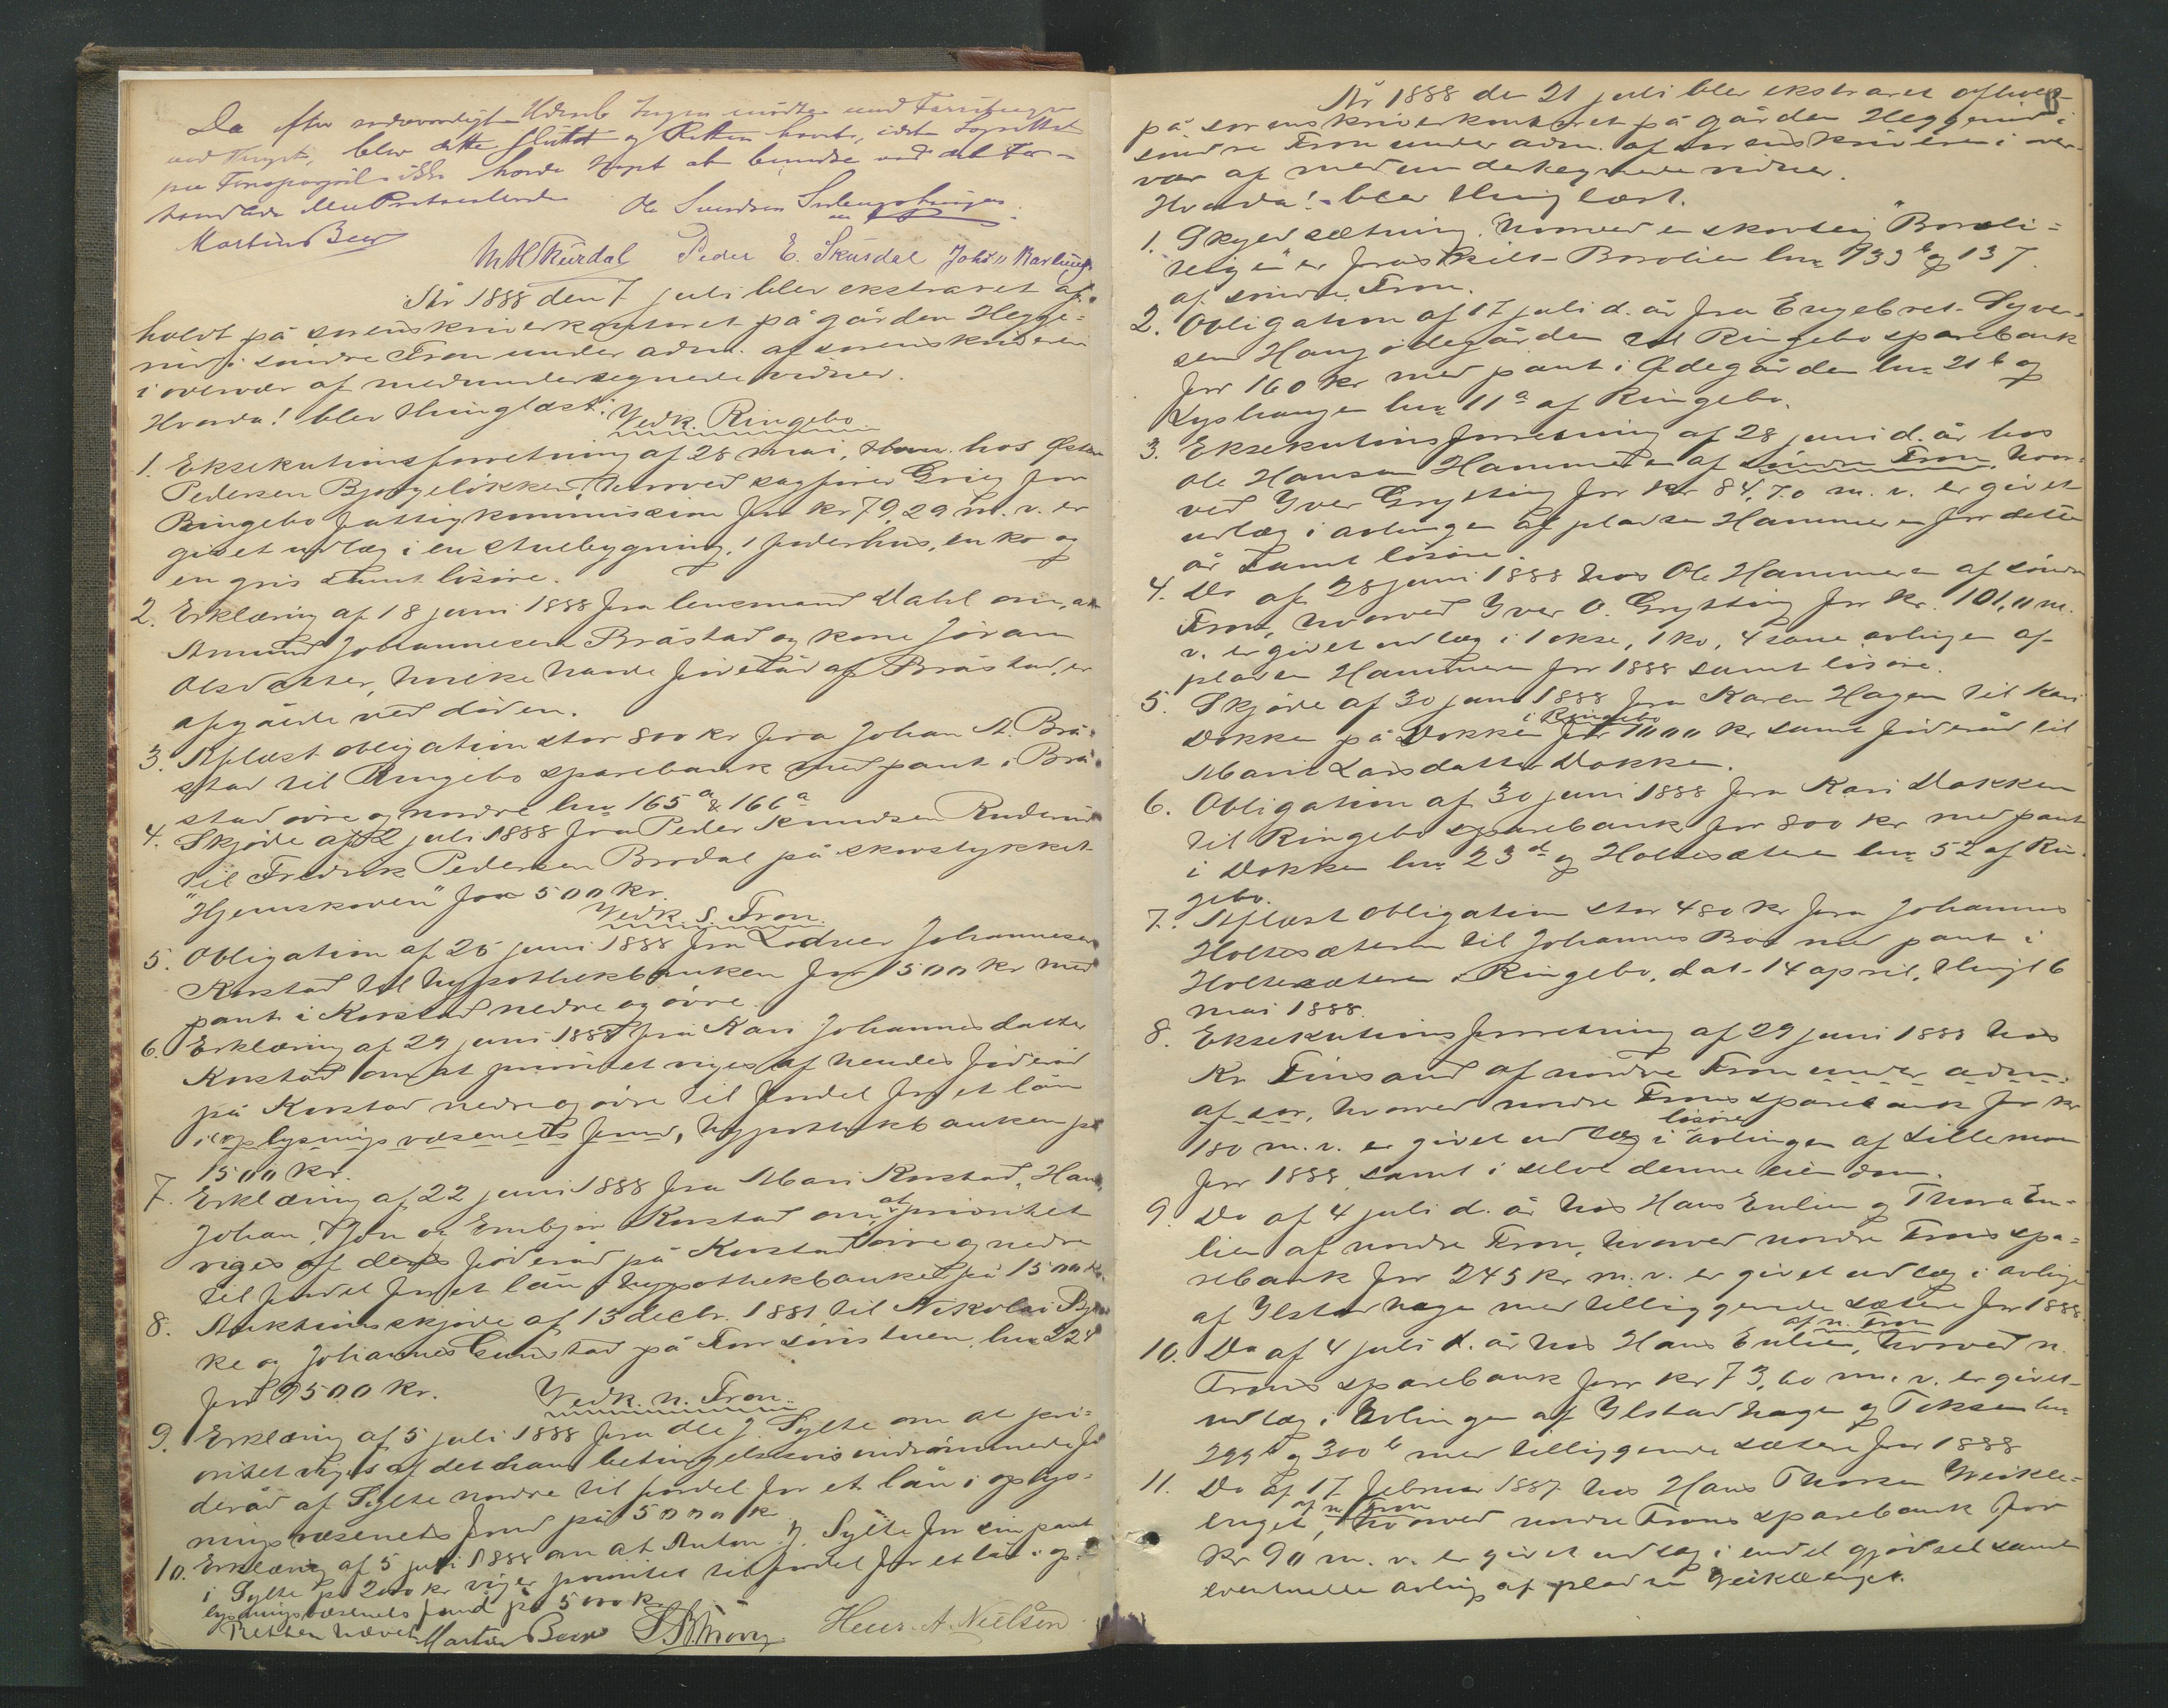 Da efter nødvendigt Udraab Ingen mødte med Forretninger
ved Thinget, blev dette sluttet og Retten hævet, idet Lagrettet
paa Forespørgsel ikke havde Noget at bemærke ved det For-
handlede eller Protocollerede
Martin Beer Ole Svendsen
M H Kürdal Peder E. Skusdal Johs
År 1888 den 7 juli blev ekstraret af-
holdt på sorenskriverkontoret på gården Hegge-
rud i søndre Fron under adm. af sorenskriveren
i overvær af medundertegnede vidner.
Hvorda! blev thinglæst:
Vedk. Ringebo
1. Eksekutionsforretning af 28 mai, hos Østen
Pedersen Bjørgeløkken, hvorved sagfører Grieg for
Ringebo fattigkommission for kr 79,29 m. v. er
givet udlæg i en stuebygning, 1 foderhus, en ko og
en gris samt løsøre.
2. Erklæring af 18 juni 1888 fra lensmand Dahl om, at
Amund Johannesen Bråstad og kone Jøran
Olsdatter, hvilke havde føderåd af Bråstad, er
afgåede ved døden.
3. Aflæst obligation stor 800 kr fra Johan A. Brå-
stad til Ringebo sparebank med pant i Brå-
stad øvre og nordre lnr 165 a & 166 a
4. Skjøde af 2 juli 1888 fra Peder Knudsen Ruderud
til Fredrik Pedersen Brodal på skovstykket
"Hjemskoven" for 500 kr.
Vedk. s. Fron.
5. Obligation af 25 juni 1888 fra Lodver Johannesen
Korstad til hypothekbanken for 1500 kr med
pant i Korstad nedre og øvre.
6. Erklæring af 29 juni 1888 fra Kari Johannesdatter
Korstad om at prioritet viges af hendes føderåd
på Korstad nedre og øvre til fordel for et lån
i oplysningsvæsenets fond, hypothekbanken på
1500 kr.
7. Erklæring af 22 juni 1888 fra Mari Korstad, Hans,
Johan, Jon og Embjør Korstad om, at prioritet
viges af deres føderåd på Korstad øvre og nedre
til fordel for et lån i hypothekbanken på 1500 kr.
8. Auktionsskjøde af 13 decbr. 1881 til Nikolai
ke og Johannes Grimstad på lnr 224
for 9500 kr.
Vedk. n. Fron.
9. Erklæring af 5 juli 1888 fra Ole J. Sylte om at pri-
oritet viges af det ham betingelsesvis indrømmede fø-
deråd af Sylte nordre til fordel for et lån i oplys-
ningsvæsenets fond på 5000 kr
10. Erklæring af 5 juli 1888 om at Anton J. Sylte for sin pant
i Sylte på 2000 kr viger prioritet til fordel for et lån i op-
lysningsvæsenets fond på 5000 kr.
Retten hævet Martin Beer Henr. A. Nielsen
6
År 1888 den 21 juli blev ekstraret afholdt
på sorenskriverkontoret på gården Heggerud i
søndre Fron under adm. af sorenskriveren i over-
vær af medundertegnede vidner.
Hvorda! blev thinglæst.
1. Skyldsætning, hvorved en skovteig "Borøli-
teigen" er fraskilt Borølien lnr 133 b og 137
af søndre Fron.
2. Obligation af 17 juli d. år fra Engebret Syver-
sen Haug ødegården til Ringebo sparebank
for 160 kr med pant i Ødegården lnr 21 b og
Lyshaugen lnr 11 a af Ringebo.
3. Eksekutionsforretning af 28 juni d. år hos
Ole Hansen Hammeren af søndre Fron, hvor-
ved Yver Grytting for kr 84,70 m. v. er givet
udlæg i avlingen af pladsen Hammeren for dette
år samt løsøre.
4. Do af 28 juni 1888 hos Ole Hammeren af søndre
Fron, hvorved Yver O. Grytting for kr. 101,11 m.
v. er givet udlæg i 1 okse, 1 ko, 4 sauer avlingen af
pladsen Hammeren for 1888 samt løsøre.
5. Skjøde af 30 juni 1888 fra Karen Hagen til Kari
Dokken på Dokken i Ringebo for 1000 kr samt føderåd til
Marit Larsdatter Dokken.
6. Obligation af 30 juni 1888 fra Kari Dokken
til Ringebo sparebank for 800 kr med pant
i Dokken lnr 23 d og Holtesæteren lnr 52 af Rin-
gebo.
7. Aflæst obligation stor 480 kr fra Johannes
Holtesæteren til Johannes Bøe med pant i
Holtesæteren i Ringebo, dat. 14 april, thingl 6
mai 1888.
8. Eksekutionsforretning af 29 juni 1888 hos
Kr Finsand af nordre Fron under adm.
af sor, hvorved nordre Frons sparebank for kr
180 m. v. er givet udlæg i løsøre avlingen af Lillemoen
for 1888, samt i selve denne eiendom.
9. Do af 4 juli d. år hos Hans Enlien og Thora En-
lien af nordre Fron, hvorved nordre Frons spa-
rebank for 245 kr m. v. er givet udlæg i avlingen
af Ylstadhagen med tilliggende sætere for 1888.
10. Do af 4 juli d. år hos Hans Enlien af n. Fron, hvorved n.
Frons sparebank for kr 73,60 m. v. er givet
udlæg i avlingen af Ylstadhagen og Toksen lnr
299 b og 300 b med tilliggende sætere for 1888
11. Do af 17 februar 1887 hos Hans Thorsen Veikle-
enget, af n. Fron hvorved nordre Frons sparebank for
kr 90 m. v. er givet udlæg i endel gjødsel samt
eventuelle avling af pladsen Veikleenget.